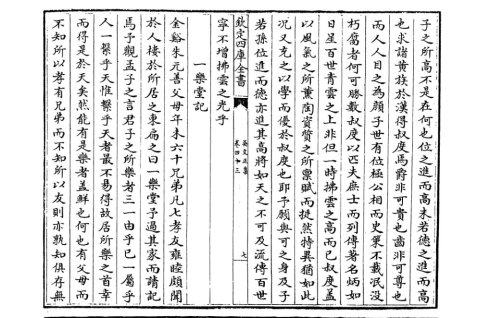 子之所高不是在何也位之進而高未若德之進而高
也求諸黄族於漢得叔度焉爵非可貴也齒非可尊也
而人人目之為顔子世有位極公相而史策不載泯没
朽腐者何可勝數叔度以匹夫庶士而列傳著名炳如
日星百世青雲之上非但一時拂雲之高而已叔度蓋
以風氣之所薫陶資質之所稟賦而挺然特異猶如此
况又充之以學而優於叔度也耶予願與可之身及子
若孫位進而德亦進其高將如天之不可及流傳百世
寧不增拂雲之光乎
一樂堂記
欽定四庫全書
吴文正集
卷四十三
七
金谿朱元善父母年未六十兄弟凡七孝友雍睦頗聞
於人棲於所居之東扁之曰一樂堂予過其家而請記
焉予觀孟子之言君子之所樂者三一由乎已一屬乎
人一繫乎天惟繫乎天者最不易得故居所樂之首幸
而得是於天矣然能有是樂者蓋鮮也何也有父母而
不知所以孝有兄弟而不知所以友則亦孰知俱存無